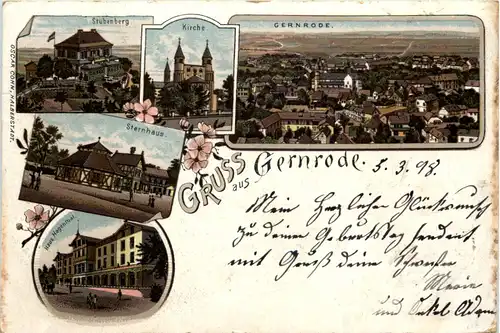 Stubenberg
Kirche
GERNRODE.
OSCAR COHN, HALBERSTADT.
Sternhaus.
Haus Hagenthal
GRUSS aus Gernrode. 5.3.98.
Mein herzlichen Glückwunsch
zu deinem Geburtstag sendet
mit Gruß deine Schwester
Marie
und Onkel Adam